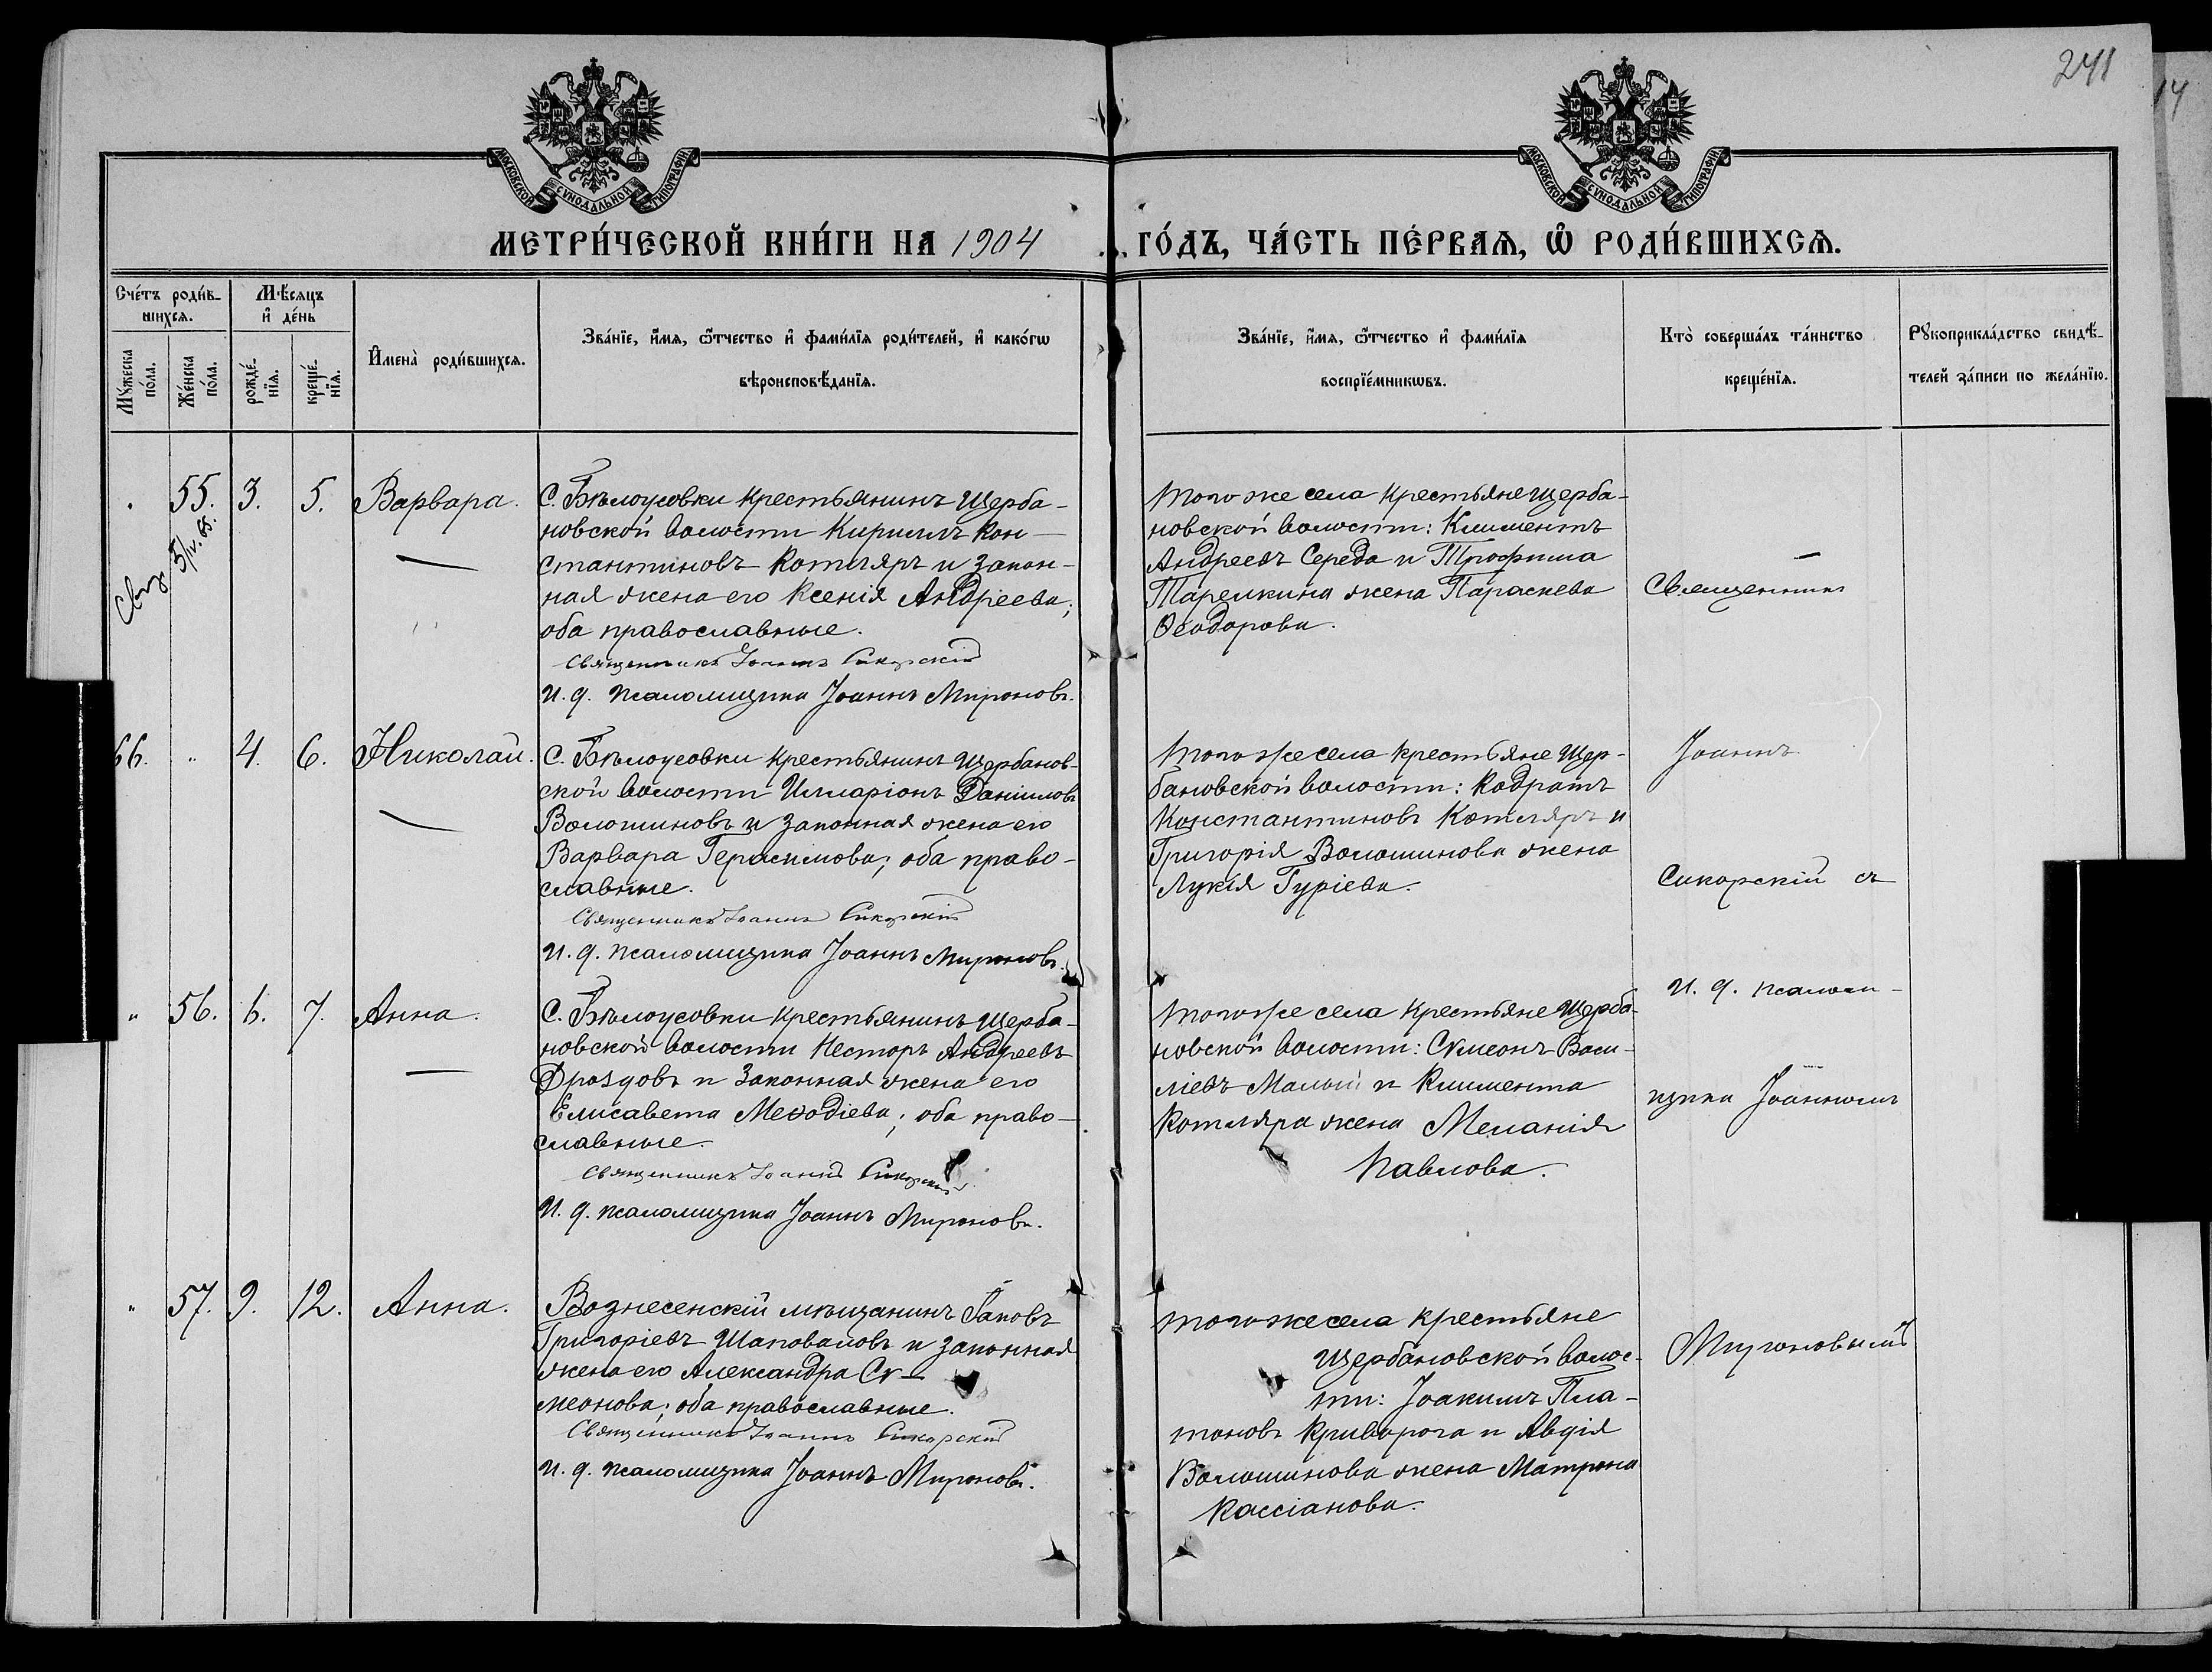 241
14
МОСКОВСКОЙ СѴНОДАЛЬНОЙ ТИПОГРАФІИ
МОСКОВСКОЙ СѴНОДАЛЬНОЙ ТИПОГРАФІИ
МЕТРИ́ЧЕСКОЙ КНИ́ГИ НА 1904 ГО́ДЪ, ЧА́СТЬ ПЕ́РВАѦ, Ѡ҆ РОДИ́ВШИХСѦ.
Сче́тъ роди́в-
шихсѧ.
Мꙋжеска по́ла.
Же́нска по́ла.
Мѣ́сяцъ
и҆ де́нь
рожде́-
нїѧ.
креще́-
нїѧ.
И҆мена̀ роди́вшихсѧ.
Зва́нїе, и҆́мѧ, ѻ҆́тчество и҆ фами́лїѧ роди́телей, и҆ како́гѡ
вѣроисповѣ́данїѧ.
Зва́нїе, и҆́мѧ, ѻ҆́тчество и҆ фами́лїѧ
воспрїе́мникѡвъ.
Кто̀ соверша́лъ та́инство
креще́нїѧ.
Рꙋкоприкла́дство свидѣ́-
телей за́писи по жела́нїю.
" 55. 3. 5. Варвара.
С. Бѣлоусовки крестьянинъ Щерба-
новской волости Кириллъ Кон-
стантиновъ Котляръ и закон-
ная жена его Ксенія Андреева;
оба православные.
Священникъ Іоаннъ Сикорскій
И. д. псаломщика Іоаннъ Мироновъ.
Того же села крестьяне Щерба-
новской волости: Климентъ
Андреевъ Середа и Трофима
Таремкина жена Параскева
Ѳеодорова.
Священникъ
66. " 4. 6. Николай.
С. Бѣлоусовки крестьянинъ Щербанов-
ской волости Илларіонъ Даніиловъ
Волошиновъ и законная жена его
Варвара Герасимова; оба право-
славные.
Священникъ Іоаннъ Сикорскій
И. д. псаломщика Іоаннъ Мироновъ.
Того же села крестьяне Щер-
бановской волости: Кодратъ
Константиновъ Котляръ и
Григорія Волошинова жена
Лукія Гуріева.
Іоаннъ
Сикорскій съ
" 56. 6. 7. Анна.
С. Бѣлоусовки крестьянинъ Щерба-
новской волости Несторъ Андреевъ
Дроздовъ и законная жена его
Елисавета Меѳодіева; оба право-
славные.
Священникъ Іоаннъ Сикорскій
И. д. псаломщика Іоаннъ Мироновъ.
Того же села крестьяне Щерба-
новской волости: Сѵмеонъ Васи-
ліевъ Малый и Климента
Котляра жена Меланія
Павлова.
И. д. псалом-
щика Іоанномъ
" 57. 9. 12. Анна.
Вознесенскій мѣщанинъ Іаковъ
Григоріевъ Шаповаловъ и законная
жена его Александра Сѵ-
меонова; оба православные.
Священникъ Іоаннъ Сикорскій
И. д. псаломщика Іоаннъ Мироновъ.
Того же села крестьяне
Щербановской волос-
ти: Іоакимъ Пла-
тоновъ Криворога и Авдія
Волошинова жена Матрона
Кассіанова.
Мироновымъ